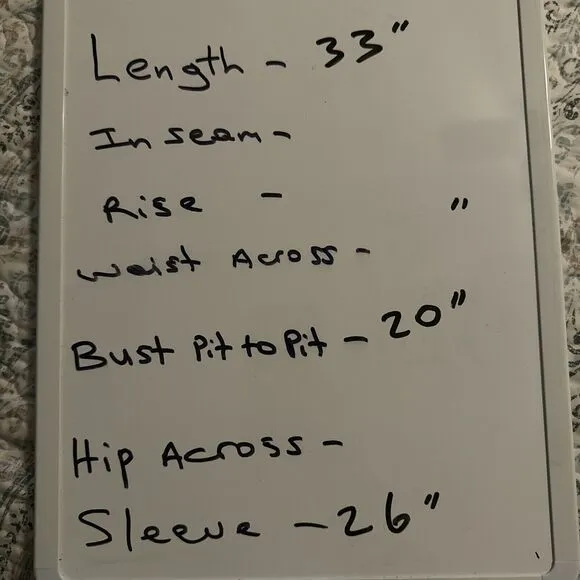 Length - 33"
Inseam -
Rise - "
Waist Across -
Bust Pit to Pit - 20"
Hip Across -
Sleeve - 26"